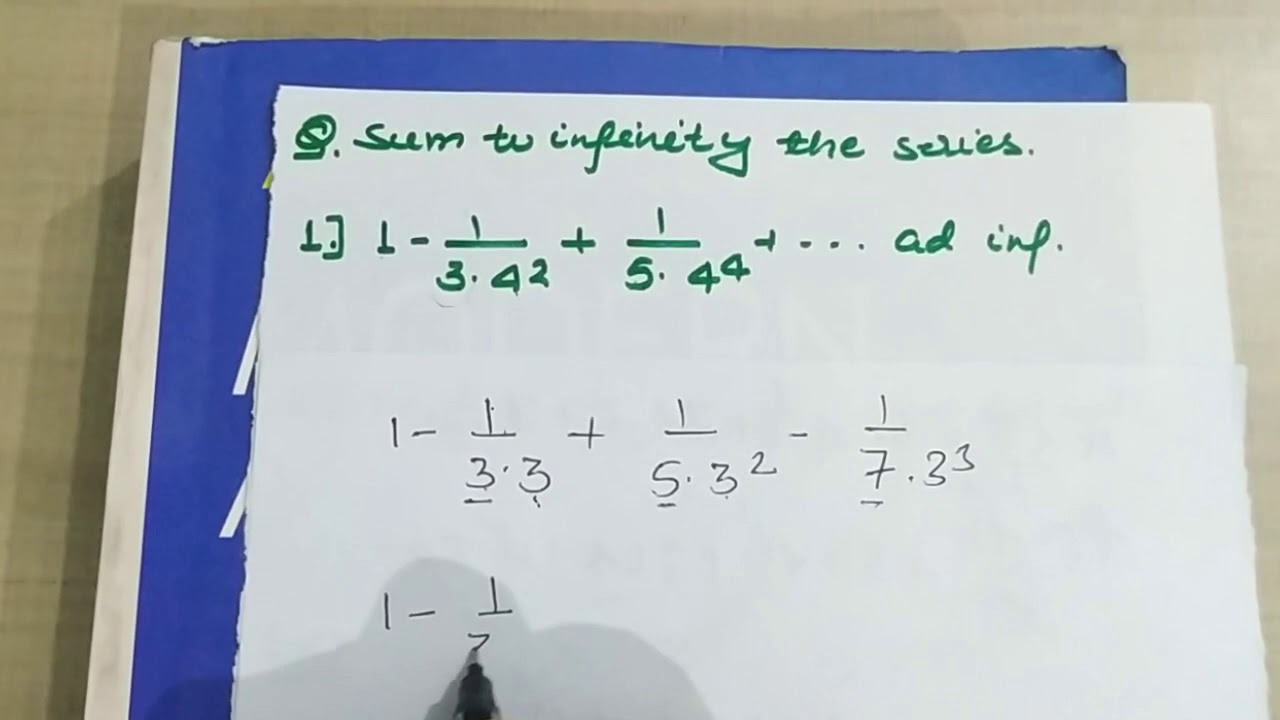 Q. Sum to infinity the series.
1.] 1 - 1/(3·4²) + 1/(5·4⁴) + ... ad inf.
1 - 1/(3·3) + 1/(5·3²) - 1/(7·3³)
1 - 1/